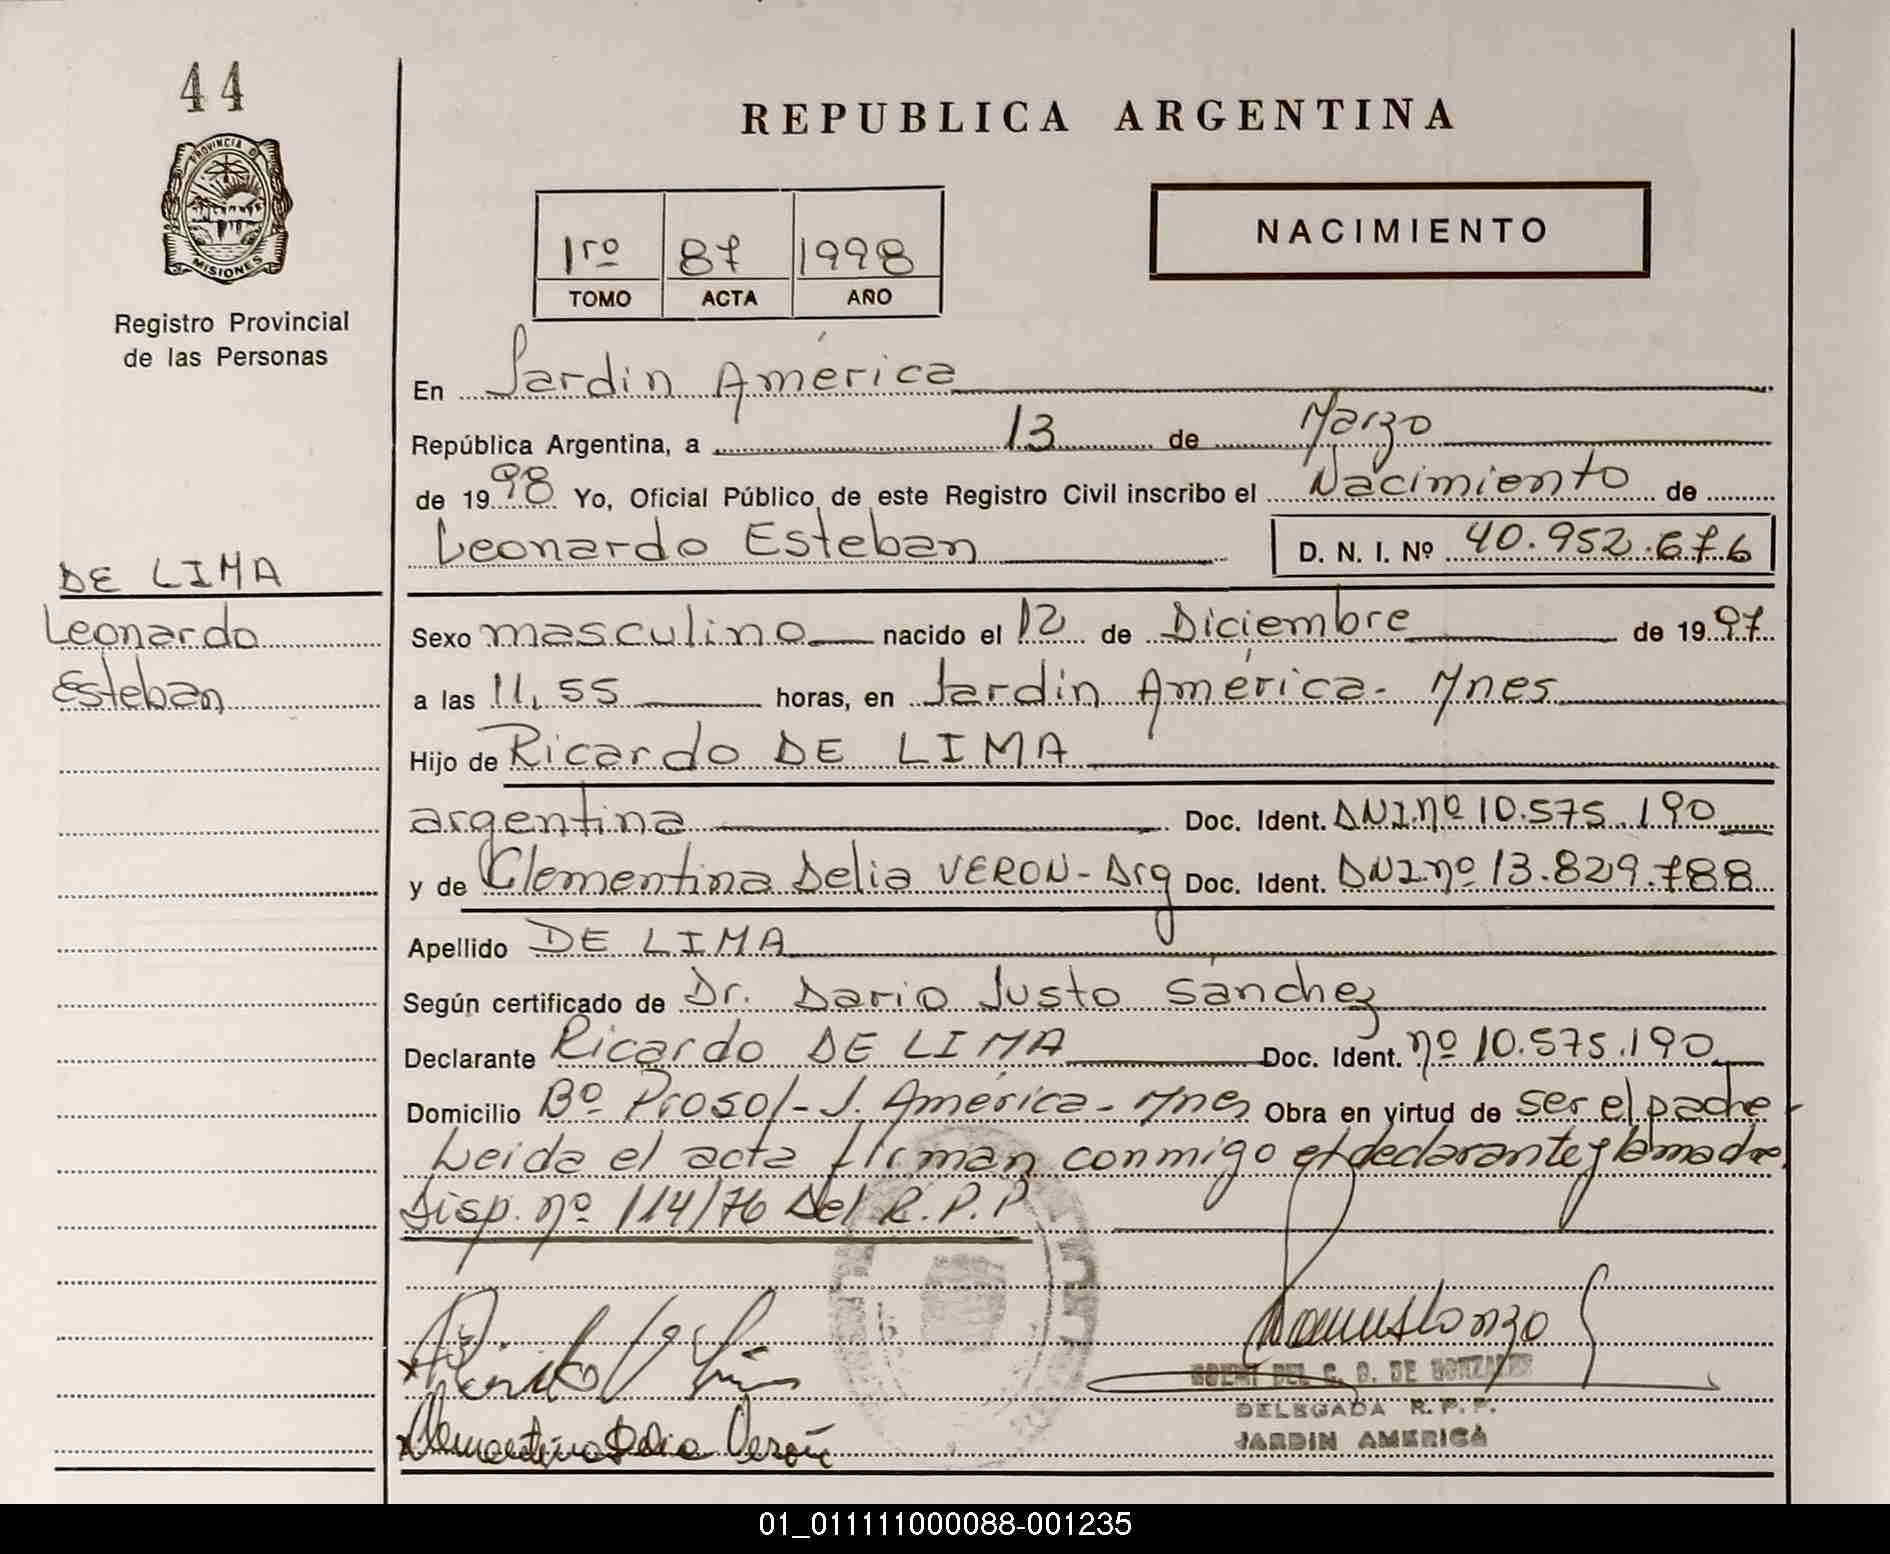 44
PROVINCIA DE
MISIONES
Registro Provincial
de las Personas
DE LIMA
Leonardo
Esteban
REPUBLICA ARGENTINA
1ro 87 1998
TOMO ACTA AÑO
NACIMIENTO
En Jardin América
República Argentina, a 13 de Marzo
de 1998 Yo, Oficial Público de este Registro Civil inscribo el Nacimiento de
Leonardo Esteban D. N. I. Nº 40.952.676
Sexo masculino nacido el 12 de Diciembre de 1997
a las 11,55 horas, en Jardin América - Mnes
Hijo de Ricardo DE LIMA
argentina Doc. Ident. DNI.nº 10.575.190
y de Clementina Delia VERON - Arg Doc. Ident. DNI.nº 13.829.788
Apellido DE LIMA
Según certificado de Dr. Dario Justo Sánchez
Declarante Ricardo DE LIMA Doc. Ident. nº 10.575.190
Domicilio Bº Prosol - J. América - Mnes Obra en virtud de ser el padre -
Leida el acta firman conmigo el declarante y la madre.
Disp. nº 114/76 Del R.P.P
Clementina Delia Verón
DEL C. D. DE GONZALEZ
DELEGADA R. P. P.
JARDIN AMERICA
01_011111000088-001235